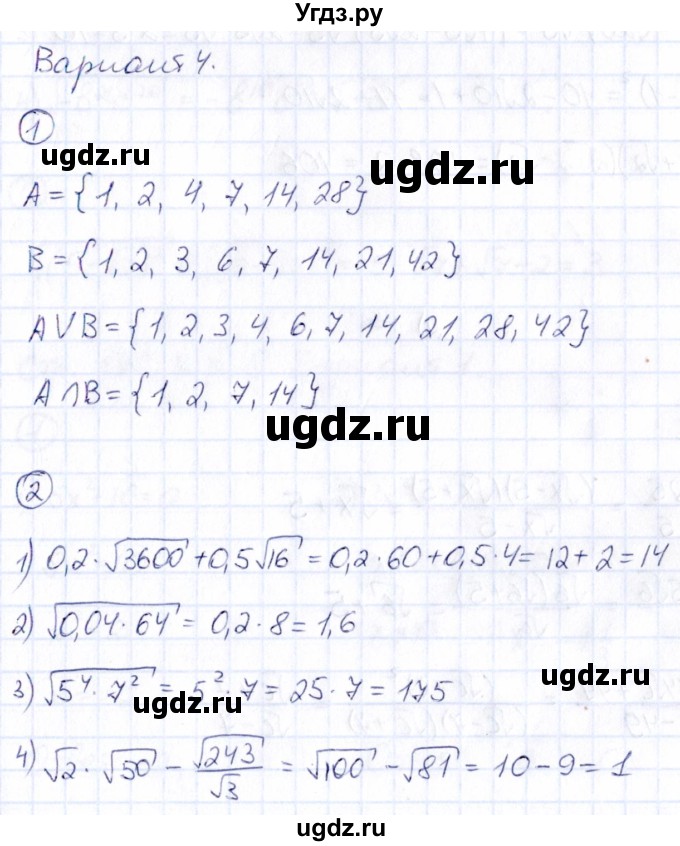 Угдз.ру
Вариант 4.
1
ugdz.ru
ugdz.ru
A = {1, 2, 4, 7, 14, 28}
B = {1, 2, 3, 6, 7, 14, 21, 42}
A∪B = {1, 2, 3, 4, 6, 7, 14, 21, 28, 42}
A∩B = {1, 2, 7, 14}
ugdz.ru
2
1) 0,2·√3600 + 0,5√16 = 0,2·60 + 0,5·4 = 12 + 2 = 14
2) √0,04·64 = 0,2·8 = 1,6
ugdz.ru
3) √5⁴·7² = 5²·7 = 25·7 = 175
ugdz.ru
4) √2·√50 − √243/√3 = √100 − √81 = 10 − 9 = 1
ugdz.ru